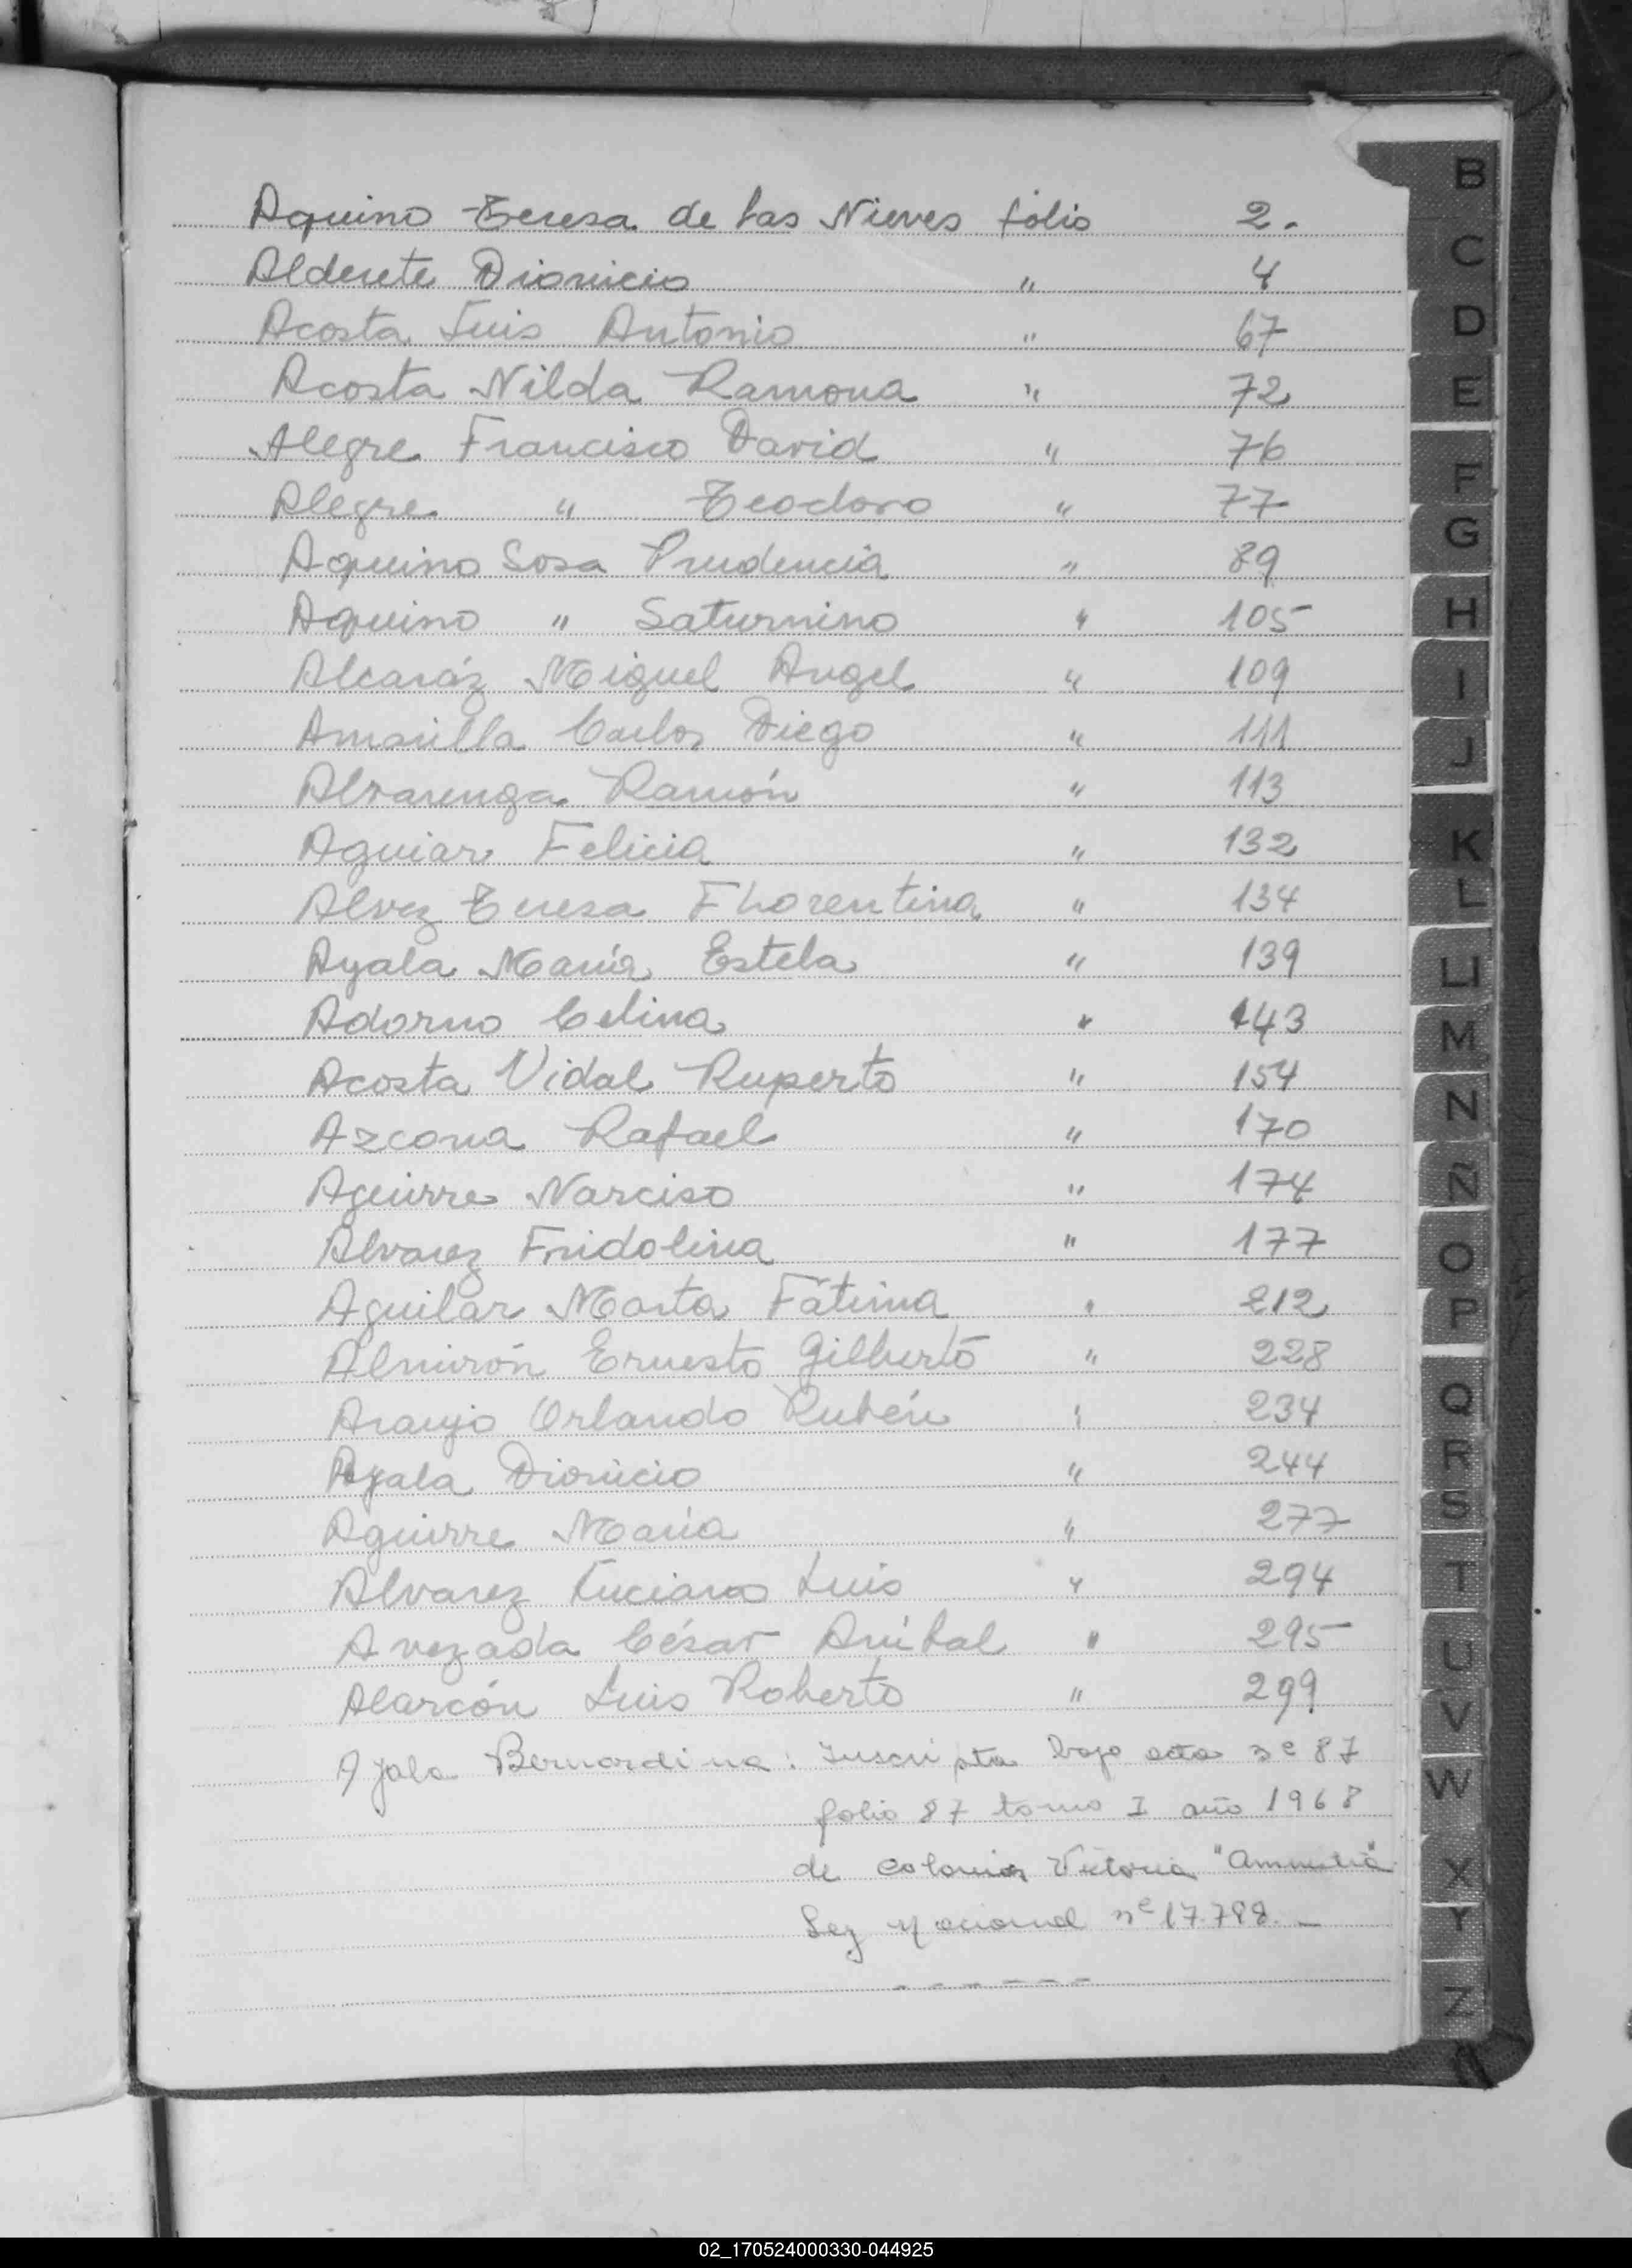 Aquino Teresa de las Nieves folio 2.
Alderete Dionicio " 4
Acosta Luis Antonio " 67
Acosta Nilda Ramona " 72
Alegre Francisco David " 76
Alegre " Teodoro " 77
Aquino Sosa Prudencia " 89
Aquino " Saturnino " 105
Alcaráz Miguel Angel " 109
Amarilla Carlos Diego " 111
Alvarenga Ramón " 113
Aguiar Felicia " 132
Alvez Teresa Florentina " 134
Ayala María Estela " 139
Adorno Celina " 143
Acosta Vidal Ruperto " 154
Azcona Rafael " 170
Aguirre Narciso " 174
Alvarez Fridolina " 177
Aguilar Marta Fátima " 212
Almirón Ernesto Gilberto " 228
Araujo Orlando Rubén " 234
Ayala Dionicio " 244
Aguirre María " 277
Alvarez Luciano Luis " 294
Avezada César Aníbal " 295
Alarcón Luis Roberto " 299
Ayala Bernardina: Inscripta bajo acta nº 87
folio 87 tomo I año 1968
de Colonia Victoria "Amnistía"
Ley Nacional nº 17.788. -
- - - - - -
B
C
D
E
F
G
H
I
J
K
L
Ll
M
N
Ñ
O
P
Q
R
S
T
U
V
W
X
Y
Z
02_170524000330-044925